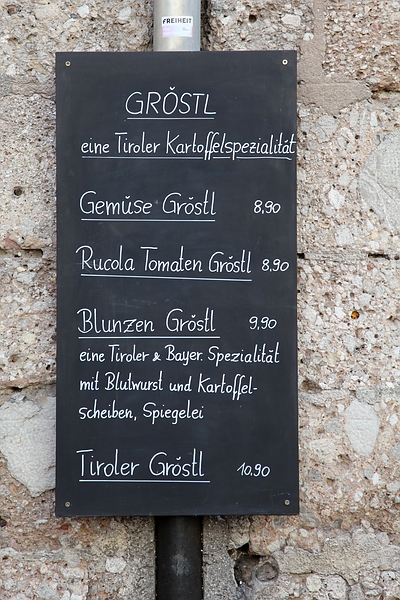 FREIHEIT
GRÖSTL
eine Tiroler Kartoffelspezialität
Gemüse Gröstl 8,90
Rucola Tomaten Gröstl 8,90
Blunzen Gröstl 9,90
eine Tiroler & Bayer. Spezialität
mit Blutwurst und Kartoffel-
scheiben, Spiegelei
Tiroler Gröstl 10,90